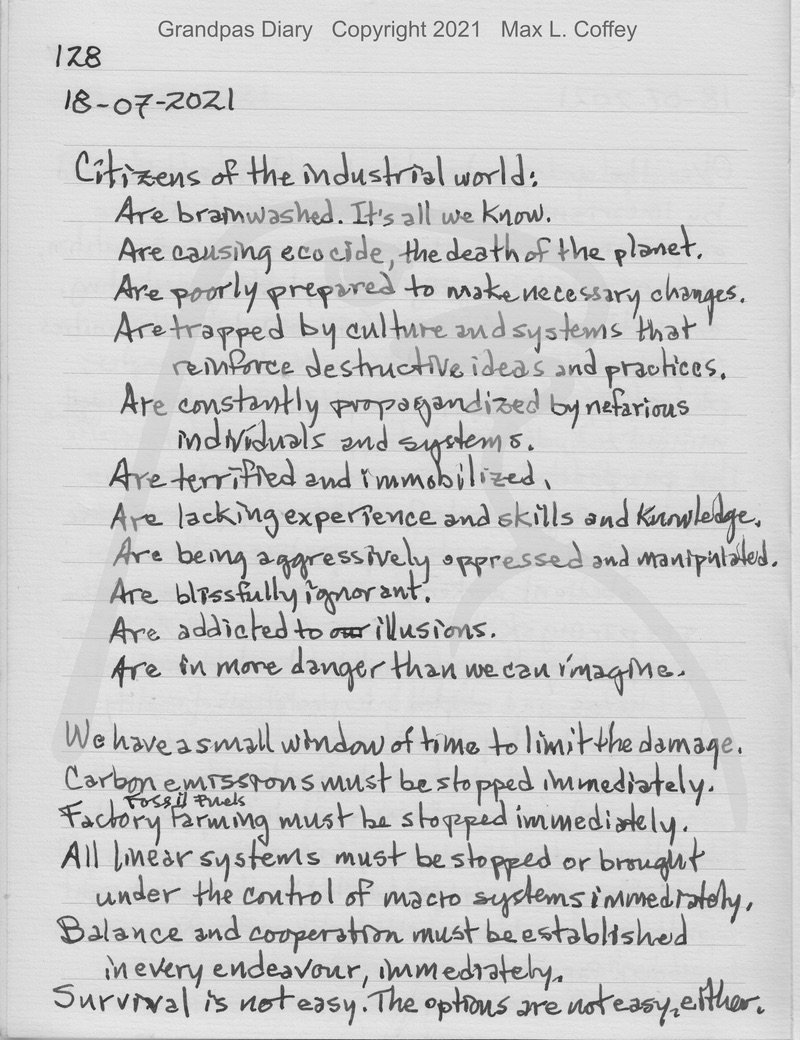 Grandpas Diary Copyright 2021 Max L. Coffey
128
18-07-2021
Citizens of the industrial world:
Are brainwashed. It's all we know.
Are causing ecocide, the death of the planet.
Are poorly prepared to make necessary changes.
Are trapped by culture and systems that
reinforce destructive ideas and practices.
Are constantly propagandized by nefarious
individuals and systems.
Are terrified and immobilized.
Are lacking experience and skills and knowledge.
Are being aggressively oppressed and manipulated.
Are blissfully ignorant.
Are addicted to our illusions.
Are in more danger than we can imagine.
We have a small window of time to limit the damage.
Carbon emissions must be stopped immediately.
Fossil Fuels
Factory farming must be stopped immediately.
All linear systems must be stopped or brought
under the control of macro systems immediately.
Balance and cooperation must be established
in every endeavour, immediately.
Survival is not easy. The options are not easy, either.